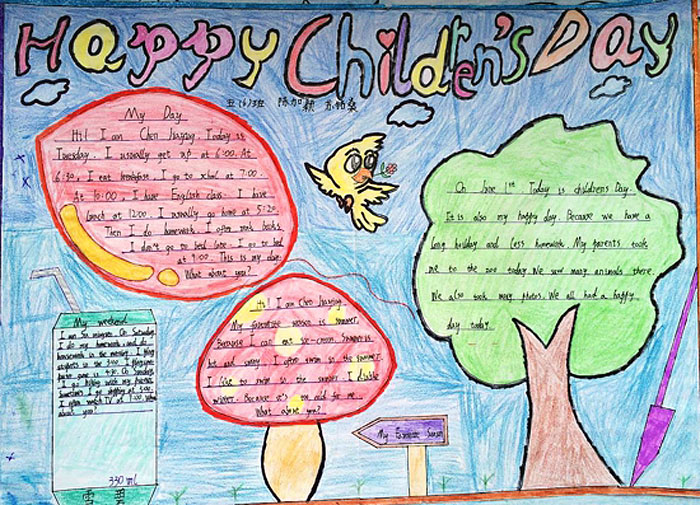 Happy Children's Day
五(6)3班 陈加颖
My Day
Hi! I am Chen Jiaying. Today is
Tuesday. I usually get up at 6:00. At
6:30, I eat breakfast. I go to school at 7:00.
At 10:00, I have English class. I have
lunch at 12:00. I usually go home at 5:20.
Then I do homework. I often read books.
I don't go to bed late. I go to bed
at 9:00. This is my day.
What about you?
On June 1st. Today is children's Day.
It is also my happy day. Because we have a
long holiday and less homework. My parents took
me to the zoo today. We saw many animals there.
We also took many photos. We all had a happy
day today.
Hi! I am Chen Jiaying.
My favourite season is summer.
Because I can eat ice-cream. Summer is
hot and sunny. I often swim in the summer.
I like to swim in the summer. I dislike
winter. Because it's too cold for me.
What about you?
My Favourite Season
My weekend
I am Su On Saturday
I do my homework and do
housework in the morning. I
at 9:00. I
at 4:30. On Sunday,
I go hiking with my parents.
Sometimes I go shopping at
I often watch TV at 7:00. What
about you?
330 ml